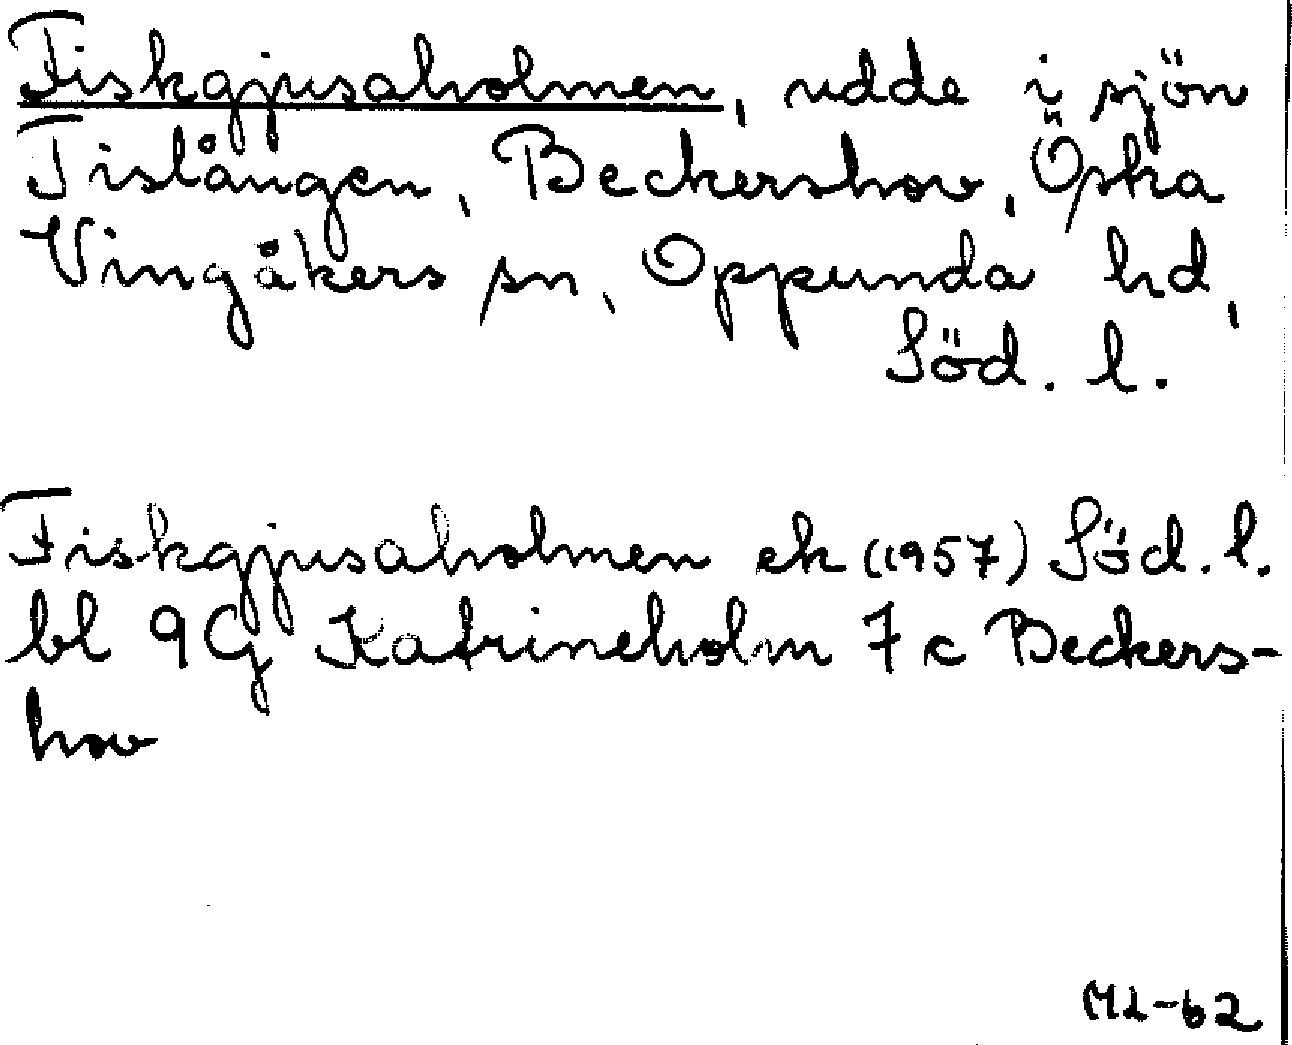 Fiskgjusaholmen, udde i sjön
Tislången, Beckershov, Öska
Vingåkers sn, Oppunda hd,
Söd. l.
Fiskgjusaholmen ek (1957) Söd. l.
bl 9G Katrineholm 7c Beckers-
hov
ML-62